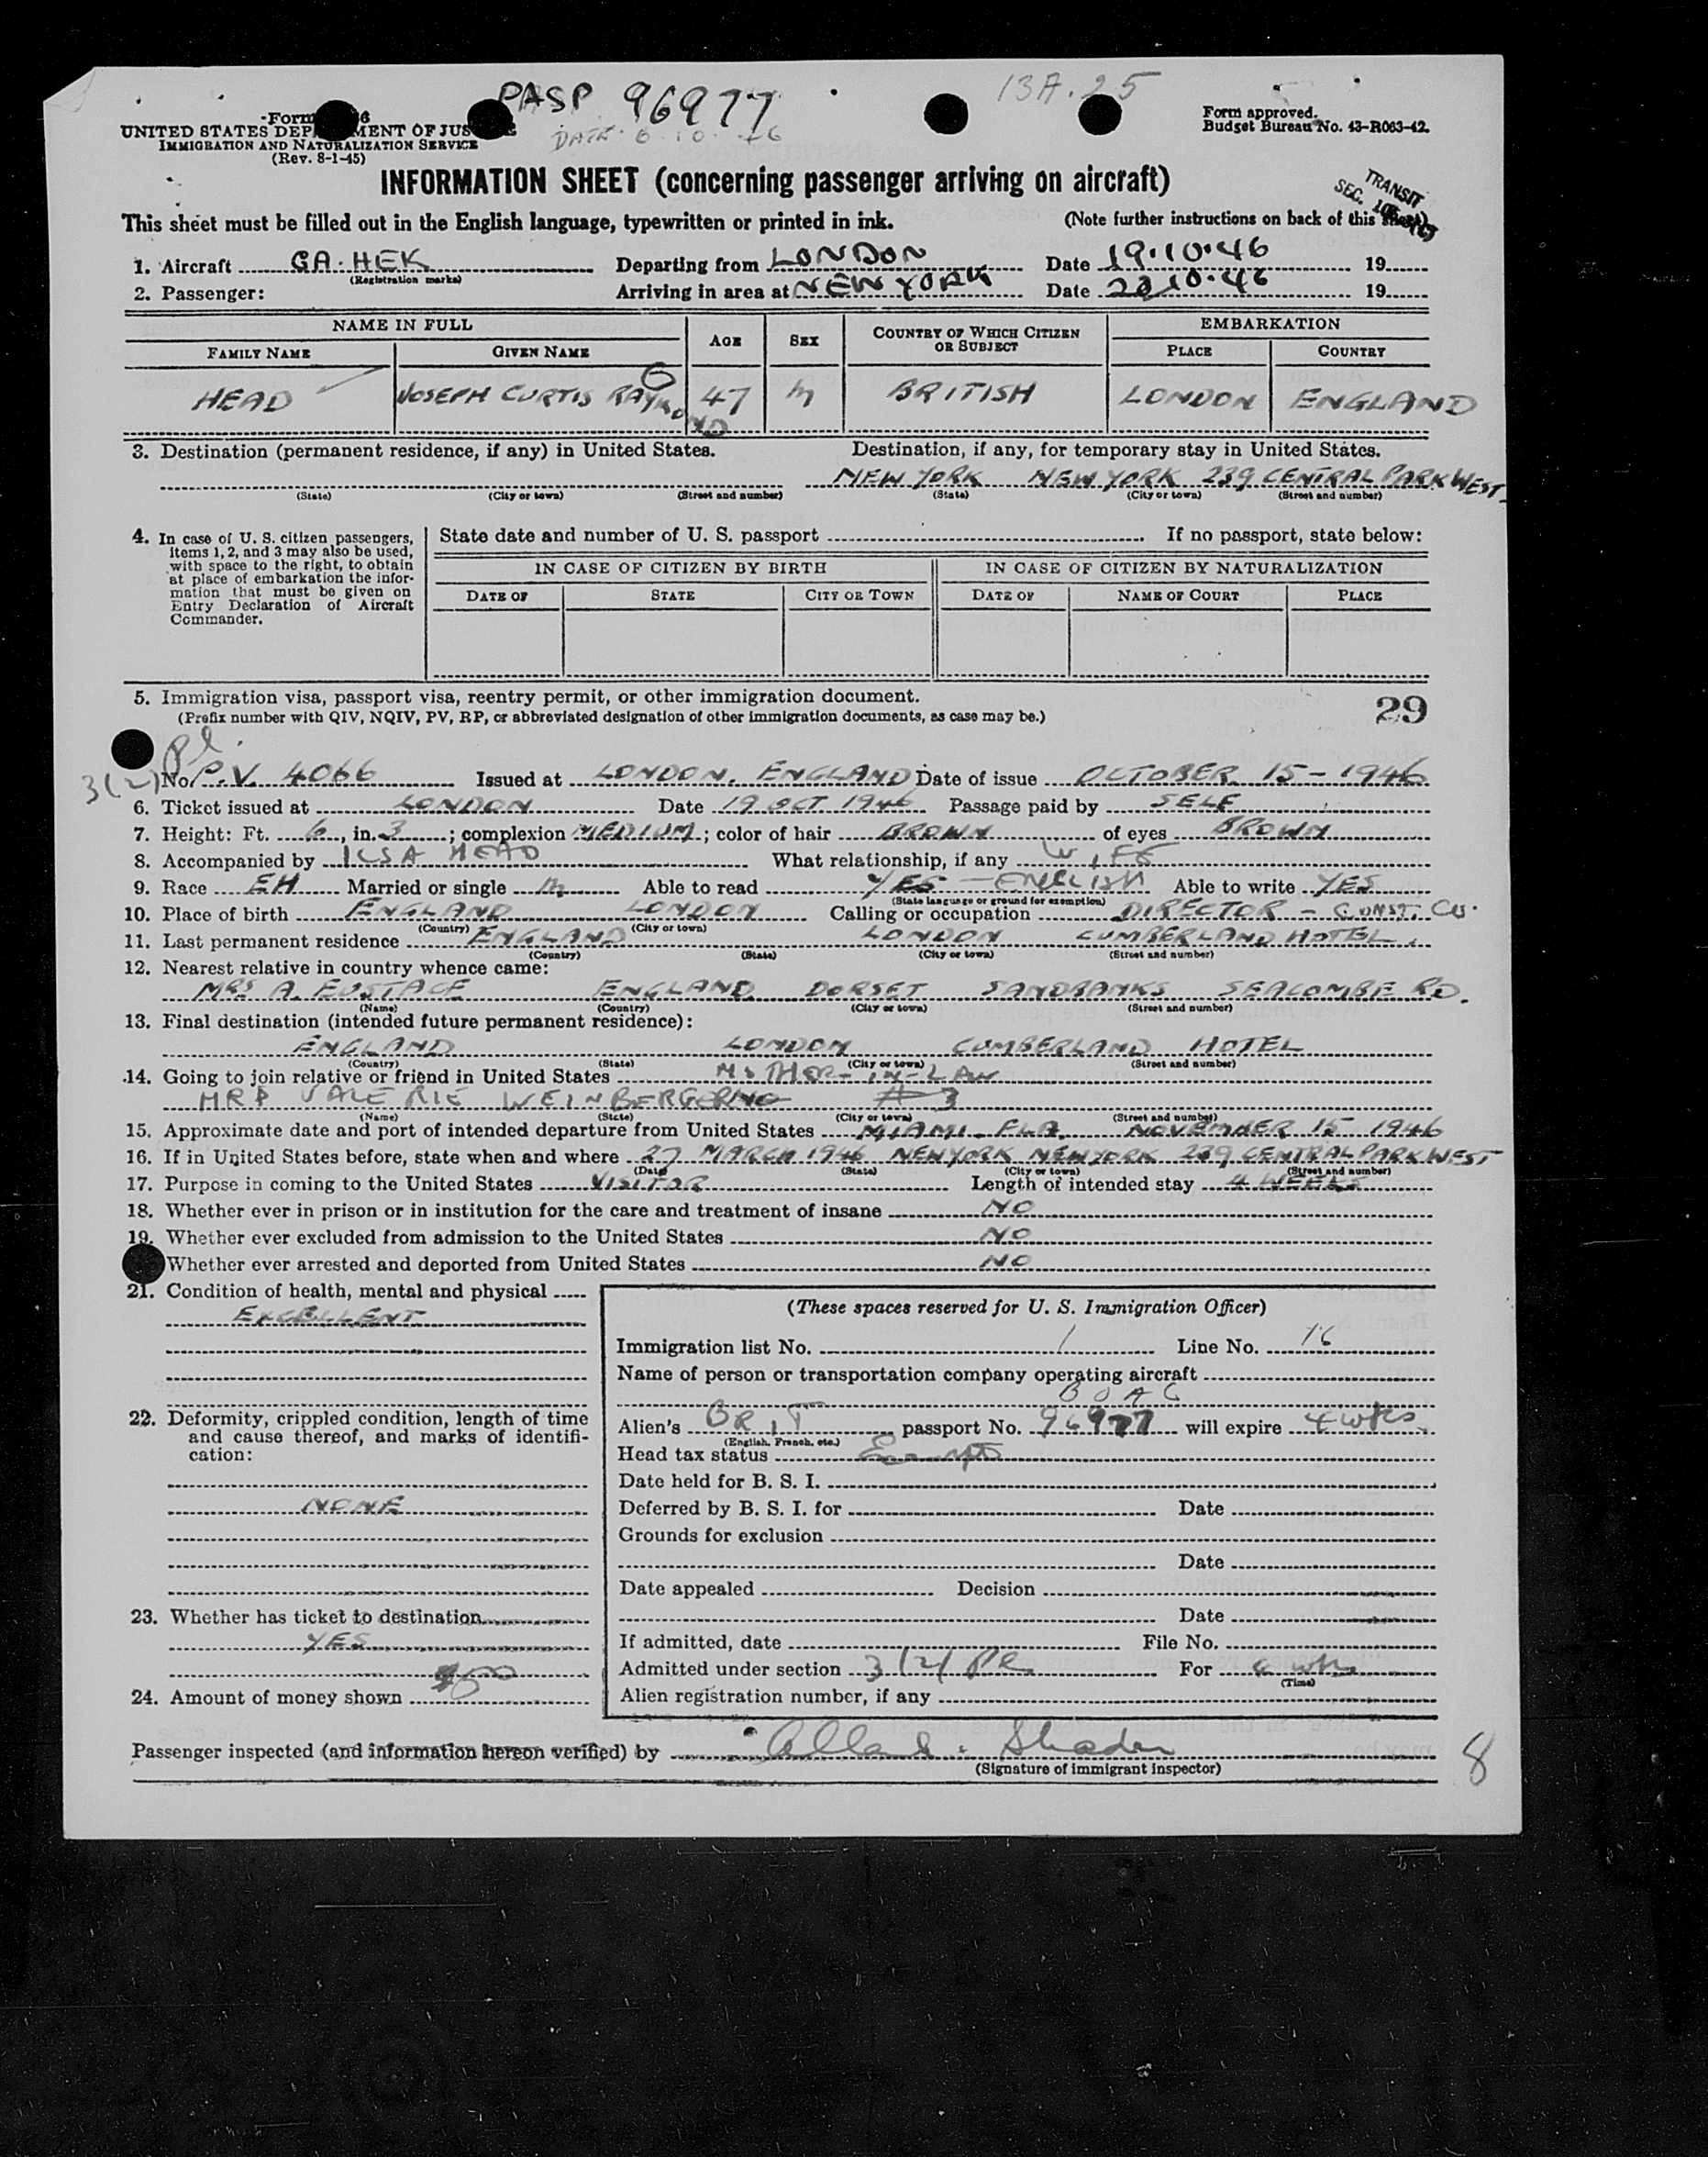 PASP 96977 13A.25
Form 6
UNITED STATES DEPARTMENT OF JUS
IMMIGRATION AND NATURALIZATION SERVICE
(Rev. 8-1-45)
Form approved.
Budget Bureau No. 43-R063-42.
INFORMATION SHEET (concerning passenger arriving on aircraft)
TRANSIT
SEC.
This sheet must be filled out in the English language, typewritten or printed in ink. (Note further instructions on back of this sheet)
1. Aircraft GA.HEK Departing from LONDON Date 19.10.46 19
(Registration marks)
2. Passenger: Arriving in area at NEW YORK Date 10.46 19
NAME IN FULL AGE SEX COUNTRY OF WHICH CITIZEN OR SUBJECT EMBARKATION
FAMILY NAME GIVEN NAME PLACE COUNTRY
HEAD JOSEPH CURTIS RAYMOND 47 M BRITISH LONDON ENGLAND
3. Destination (permanent residence, if any) in United States. Destination, if any, for temporary stay in United States.
NEW YORK NEW YORK 239 CENTRAL PARK WEST
(State) (City or town) (Street and number) (State) (City or town) (Street and number)
4. In case of U. S. citizen passengers, items 1, 2, and 3 may also be used, with space to the right, to obtain at place of embarkation the information that must be given on Entry Declaration of Aircraft Commander.
State date and number of U. S. passport If no passport, state below:
IN CASE OF CITIZEN BY BIRTH IN CASE OF CITIZEN BY NATURALIZATION
DATE OF STATE CITY OR TOWN DATE OF NAME OF COURT PLACE
5. Immigration visa, passport visa, reentry permit, or other immigration document.
(Prefix number with QIV, NQIV, PV, RP, or abbreviated designation of other immigration documents, as case may be.) 29
3(2) No. P.V. 4066 Issued at LONDON, ENGLAND Date of issue OCTOBER 15-1946
6. Ticket issued at LONDON Date 19 OCT 1946 Passage paid by SELF
7. Height: Ft. 6, in. 3; complexion MEDIUM; color of hair BROWN of eyes BROWN
8. Accompanied by ILSA HEAD What relationship, if any WIFE
9. Race EH Married or single M Able to read YES - ENGLISH Able to write YES
(State language or ground for exemption)
10. Place of birth ENGLAND LONDON Calling or occupation DIRECTOR - CONST. CO.
(Country) (City or town)
11. Last permanent residence ENGLAND LONDON CUMBERLAND HOTEL.
(Country) (State) (City or town) (Street and number)
12. Nearest relative in country whence came:
MRS A. EUSTACE ENGLAND DORSET SANDBANKS SEACOMBE RD.
(Name) (Country) (City or town) (Street and number)
13. Final destination (intended future permanent residence):
ENGLAND LONDON CUMBERLAND HOTEL
(Country) (State) (City or town) (Street and number)
14. Going to join relative or friend in United States MOTHER-IN-LAW
MRS VALERIE
(Name) (State) (City or town) (Street and number)
15. Approximate date and port of intended departure from United States MIAMI. FLA. NOVEMBER 15 1946
16. If in United States before, state when and where 27 MARCH 1946 NEW YORK NEW YORK 239 CENTRAL PARK WEST
(Date) (State) (City or town) (Street and number)
17. Purpose in coming to the United States VISITOR Length of intended stay 4 WEEKS
18. Whether ever in prison or in institution for the care and treatment of insane NO
19. Whether ever excluded from admission to the United States NO
Whether ever arrested and deported from United States NO
21. Condition of health, mental and physical
EXCELLENT
22. Deformity, crippled condition, length of time
and cause thereof, and marks of identifi-
cation:
NONE
23. Whether has ticket to destination
YES
24. Amount of money shown
(These spaces reserved for U. S. Immigration Officer)
Immigration list No. 1 Line No. 16
Name of person or transportation company operating aircraft
BOAC
Alien's BRIT passport No. 96977 will expire 4 wks
(English, French, etc.)
Head tax status
Date held for B. S. I.
Deferred by B. S. I. for Date
Grounds for exclusion
Date
Date appealed Decision
Date
If admitted, date File No.
Admitted under section 3(2) For
(Time)
Alien registration number, if any
Passenger inspected (and information hereon verified) by
(Signature of immigrant inspector)
8